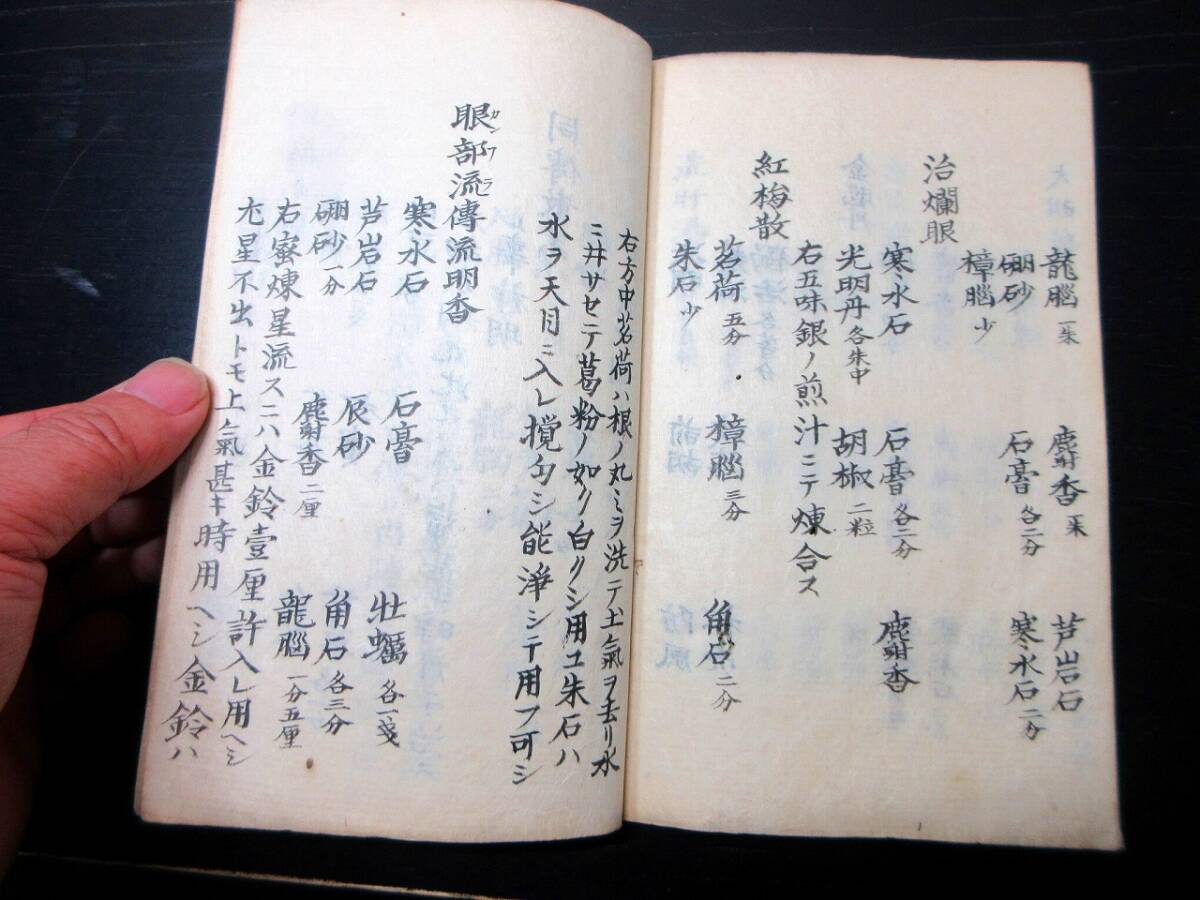 龍腦 一朱 麝香 一朱 芦岩石
硼砂 石膏 各二分 寒水石 二分
樟腦 少
治爛眼
寒水石 石膏 各二分 麝香
光明丹 各朱中 胡椒 二粒
右五味銀ノ煎汁ニテ煉合ス
紅梅散
茗荷 五分 樟腦 三分 角石 二分
朱石 少
右方中茗荷ハ根ノ丸ミヲ洗テ土氣ヲ去リ水
ニ井サセテ葛粉ノ如ク白クシ用ユ朱石ハ
水ヲ天目ニ入レ撹匀シ能淨シテ用フ可シ
眼部流傳流明香
寒水石 石膏 牡蠣 各一戔
芦岩石 辰砂 角石 各三分
硼砂 一分 麝香 二厘 龍腦 一分五厘
右蜜煉星流スニハ金鈴壹厘許入レ用ヘシ
尢星不出トモ上氣甚キ時用ヘシ金鈴ハ